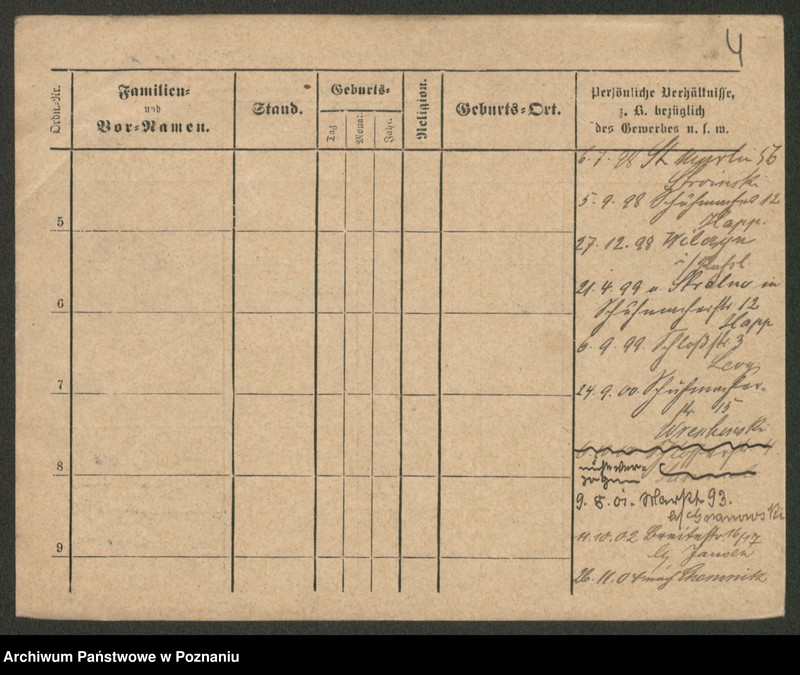 4
Ordn.-Nr.
Familien-
und
Vor-Namen.
Stand.
Geburts-
Tag
Monat
Jahr.
Religion.
Geburts-Ort.
Persönliche Verhältnisse,
z. B. bezüglich
des Gewerbes u. s. w.
6. 7. 98 St Martin 56
5. 9. 98 Schuhmacher 12
Happ.
5
27. 12. 98
21. 4. 99 in
Schuhmacherstr 12
Happ
6
6. 9. 99. Schloßstr 3
Levy
7
24. 9. 00. Schuhmacher-
str 15
Wreschowski
8
9
9. 8. 01. Markt 93.
b/Granowski
11. 10. 02 Breitestr 16/17
by Jansen
26. 11. 04 nach Chemnitz
Archiwum Państwowe w Poznaniu